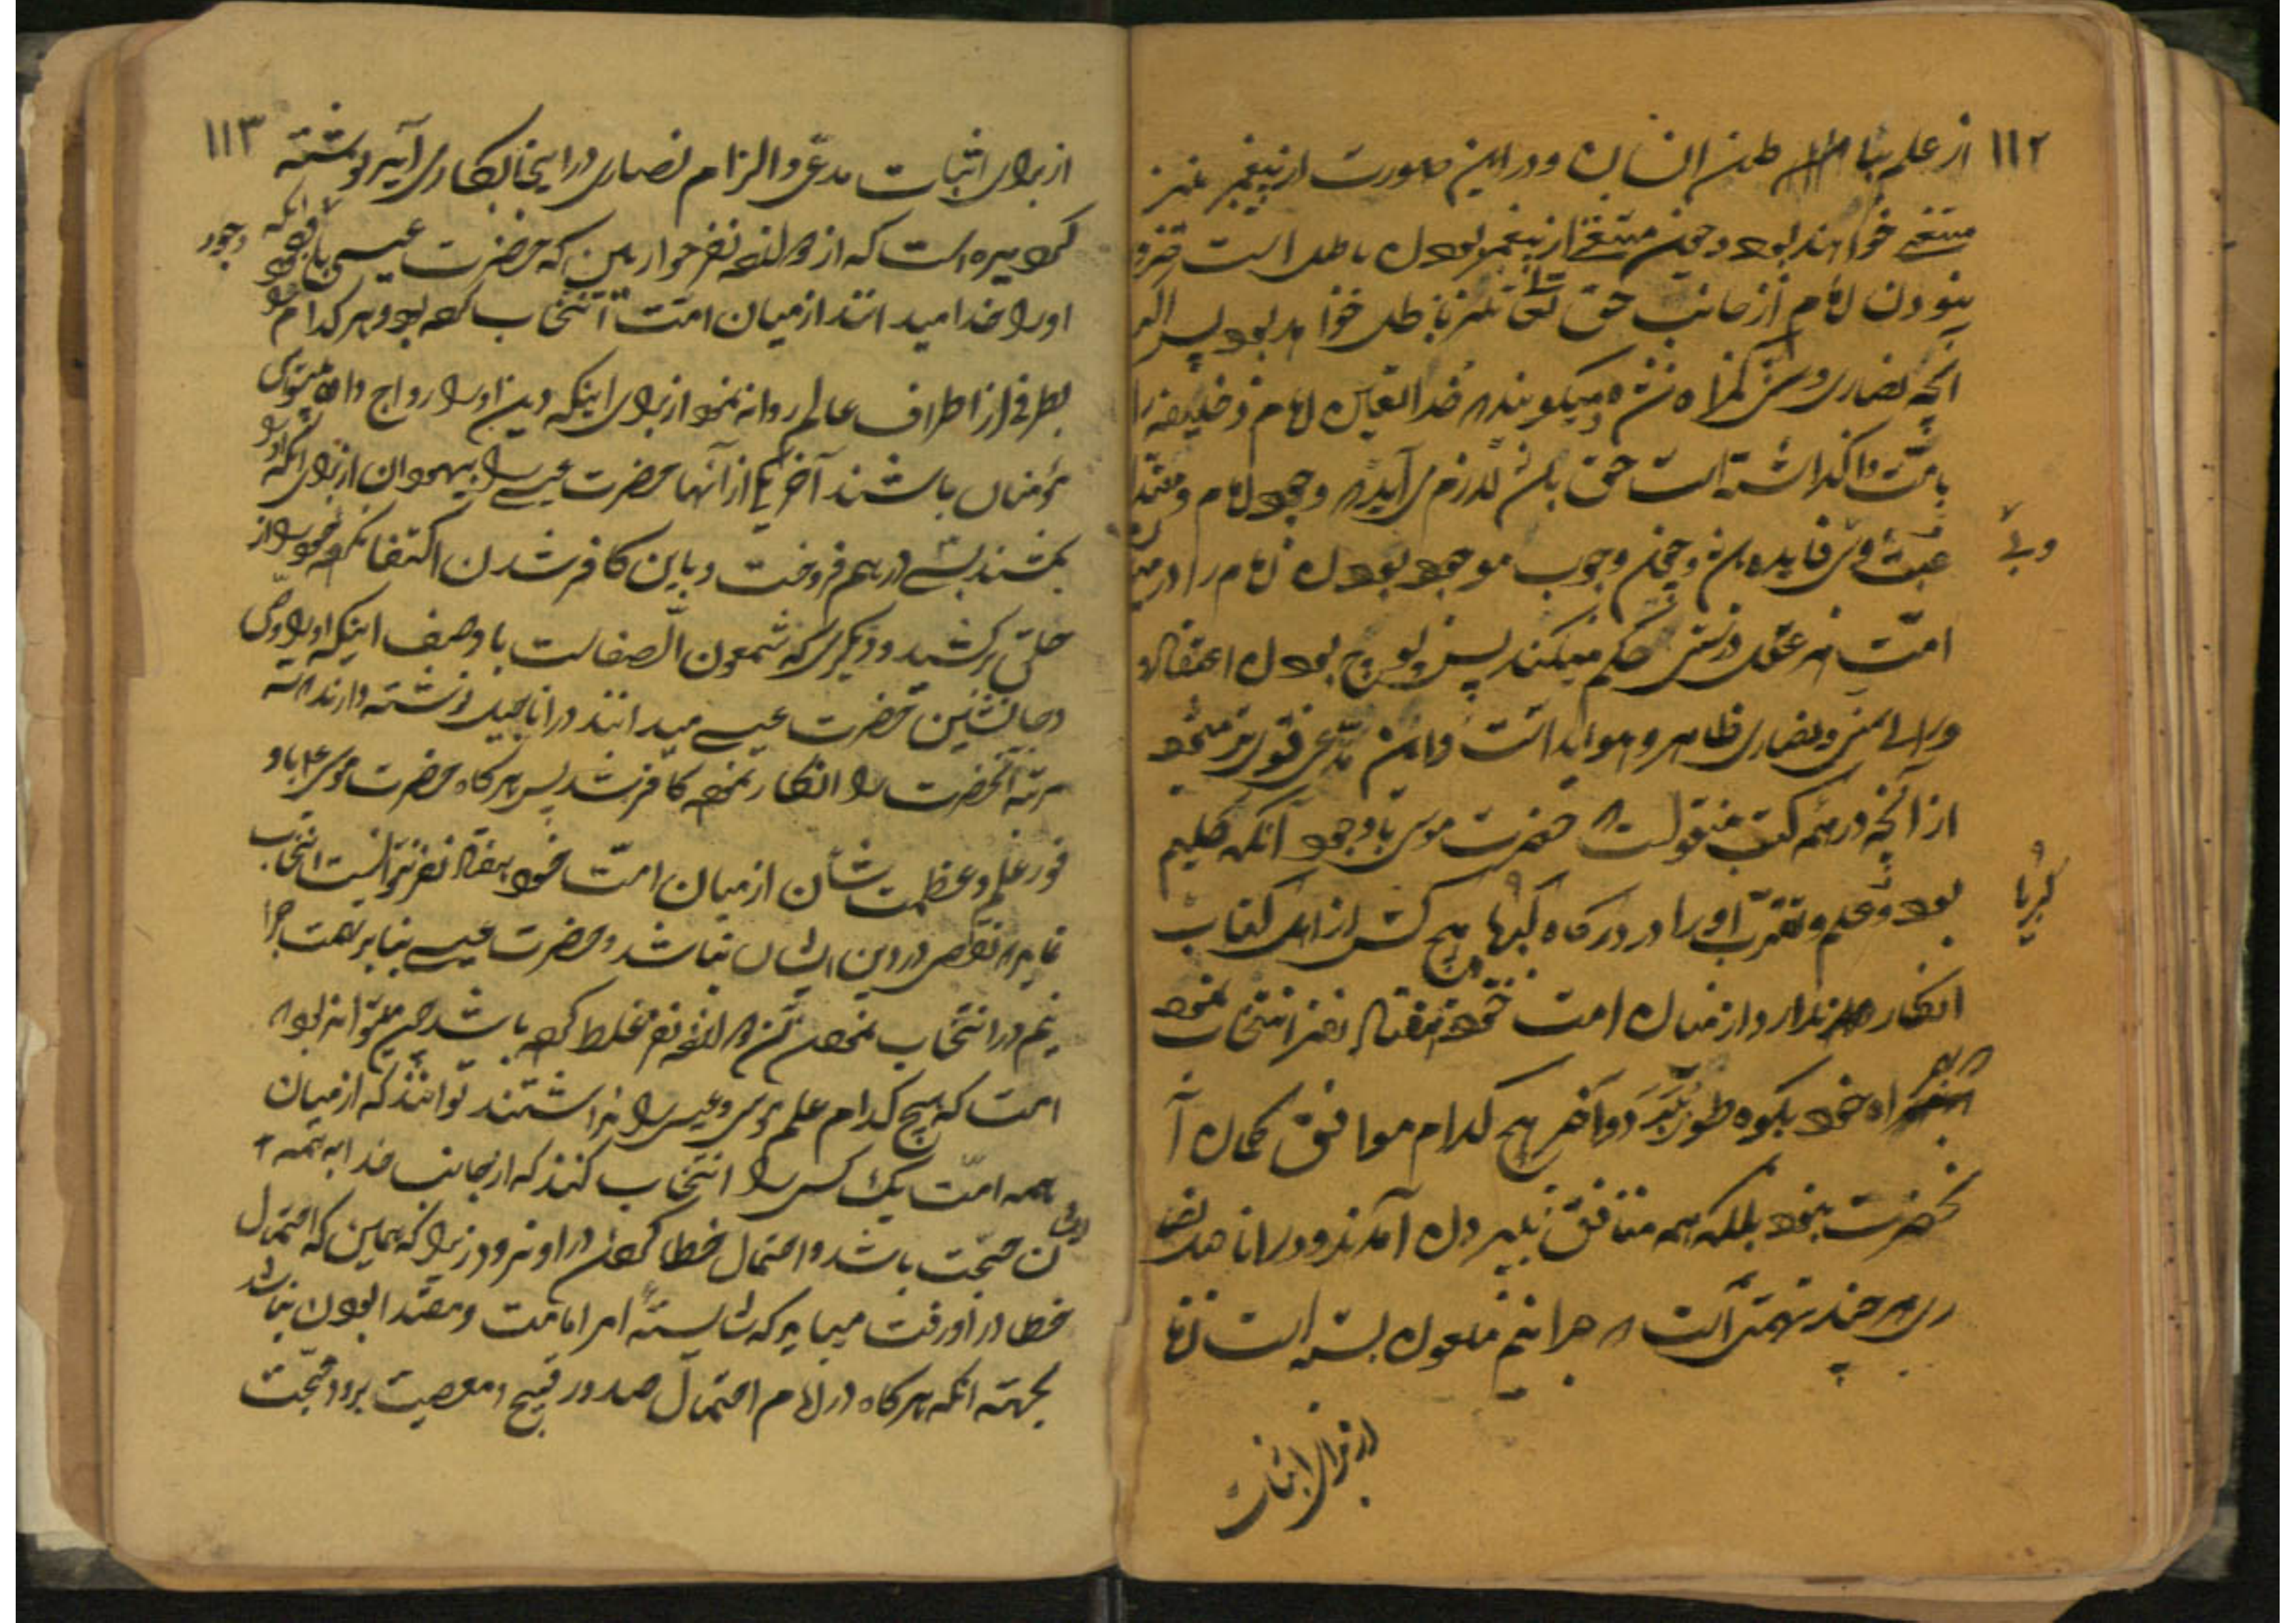 ۱۱۲
از علم بباطن انسان و در این صورت از پیغمبر نیز
منتفی خواهند بود و چون منتفی از پیغمبر بودن باطل است
بنودن امام از جانب حق تعالی نیز باطل خواهد بود پس اگر
آنچه نصاری و سنی گمراه شده میگویند که خدا تعیین امام و خلیفه را
بامت واگذاشته است حق باشد لازم می آید که وجود امام و مقتدا
عبث و بی فایده باشد و چون وجوب موجود بودن امام را در میان
وبی
امت هر عقل درستی حکم میکند پس پوچ بودن اعتقاد
و رای سنی و نصاری ظاهر و هویدا است و این مدعی قوی تر میشود
از آنچه در همه کتب منقولست که حضرت موسی با وجود آنکه کلیم
بود و علم و تقرب او را در درگاه کبریا هیچ کس از اهل کتاب
کبریا
انکار ندارد از میان امت خود هفتاد نفر انتخاب نمود
که همراه خود بکوه طور ببرد و آخر هیچ کدام موافق گمان آ
نحضرت نبود بلکه همه منافق بیرون آمدند و در اناجیل نصا
ری هر چند تهمتی است که جرانیم ملعون بسته است اما
از برای اثبات
۱۱۳
از برای اثبات مدعی و الزام نصاری در اینجا بکار می آید نوشته
کردیده است که از دوانزده نفر حواریین که حضرت عیسی با وجود
آنکه
او را خدا میدانند از میان امت انتخاب کرده بود و هر کدام را
بطرفی از اطراف عالم روانه نمود از برای اینکه دین او را رواج داده پیشوای
مؤمنان باشند آخر یکی از آنها حضرت عیسی را بیهودان از برای آنکه او را
بکشند بسی درهم فروخت و باین کافر شدن اکتفا نکرده خود را از
حلق برکشید و دیگری که شمعون الصفا است با وصف اینکه او را وصی
و جانشین حضرت عیسی میدانند در اناجیل نوشته دارند که سه
مرتبه آنحضرت را انکار نموده کافر شد پس هرگاه حضرت موسی ع با و
فور علم و عظمت شأن از میان امت خود هفتاد نفر نتوانست انتخاب
نماید که نقص در دین ایشان نباشد و حضرت عیسی بنا بر تهمت جرا
نیم در انتخاب نمودن آن دوانزده نفر غلط کرده باشد چون میتواند بود که
امت که هیچ کدام علم موسی و عیسی را نداشتند توانند که از میان
همه امت یک کس را انتخاب کنند که از جانب خدا به همه
ایشان حجت باشد و احتمال خطا کردن در او نرود زیرا که همین که احتمال
خطا در او رفت میباید که شایسته امر امامت و مقتدا بودن نباشد
بجهته آنکه هرگاه در امام احتمال صدور قبیح و معصیت برود حجت